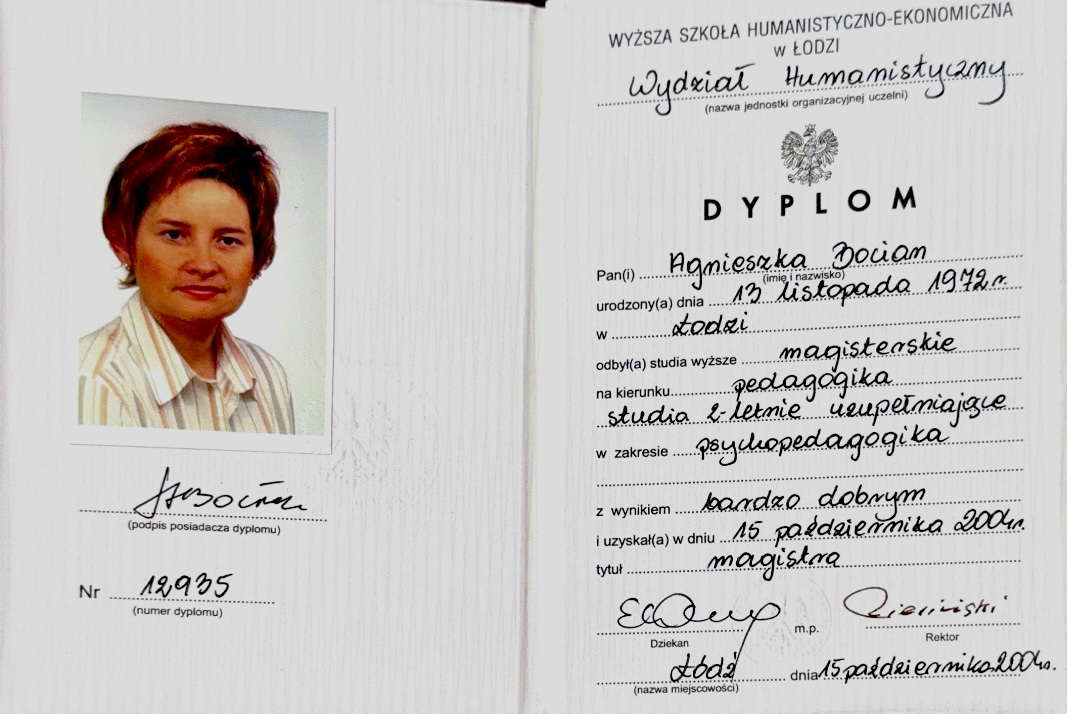 (podpis posiadacza dyplomu)
Nr 12935
(numer dyplomu)
WYŻSZA SZKOŁA HUMANISTYCZNO-EKONOMICZNA
w ŁODZI
Wydział Humanistyczny
(nazwa jednostki organizacyjnej uczelni)
DYPLOM
Pan(i) Agnieszka Bocian
(imię i nazwisko)
urodzony(a) dnia 13 listopada 1972 r.
w Łodzi
odbył(a) studia wyższe magisterskie
na kierunku pedagogika
studia 2-letnie uzupełniające
w zakresie psychopedagogika
z wynikiem bardzo dobrym
i uzyskał(a) w dniu 15 października 2004r.
tytuł magistra
Dziekan
m.p.
Rektor
Łódź dnia 15 października 2004r.
(nazwa miejscowości)